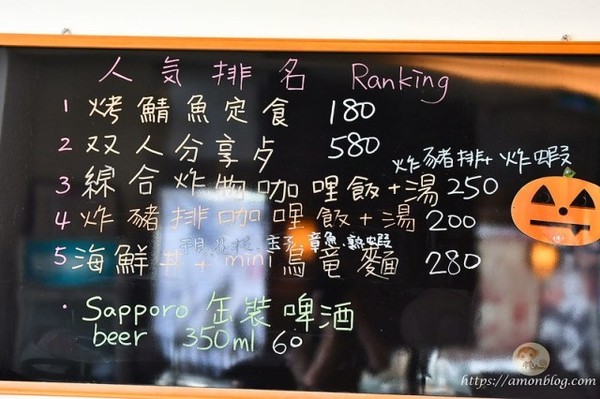 人氣排名 Ranking
1 烤鯖魚定食 180
2 双人分享歺 580
炸豬排+炸蝦
3 綜合炸物咖哩飯+湯 250
4 炸豬排咖哩飯+湯 200
章魚.熟蝦
5 海鮮丼+mini烏竜麵 280
· Sapporo 缶裝啤酒
beer 350ml 60
https://amonblog.com